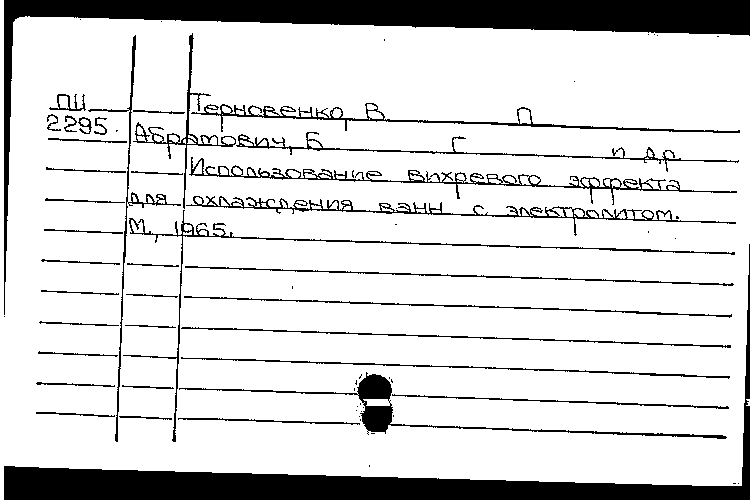 ПШ Терновенко, В П
2295. Абрамович, Б Г и др.
Использование вихревого эффекта
для охлаждения ванн с электролитом.
М., 1965.